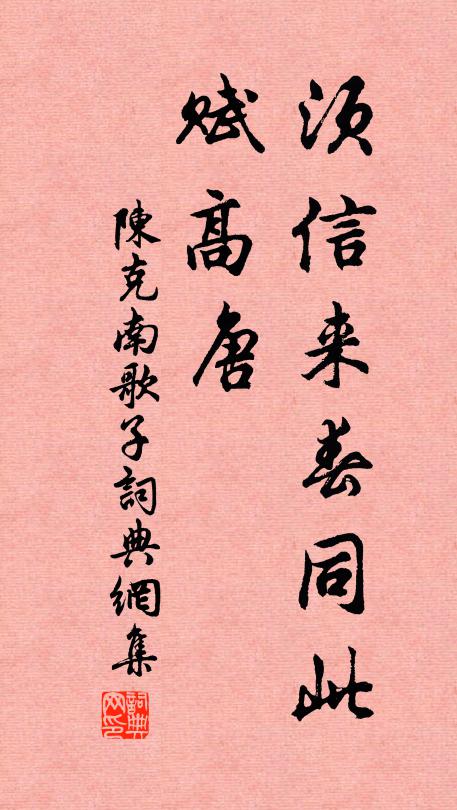 須信来春同此
賦高唐
陳克南歌子詞典網集
詞典網印